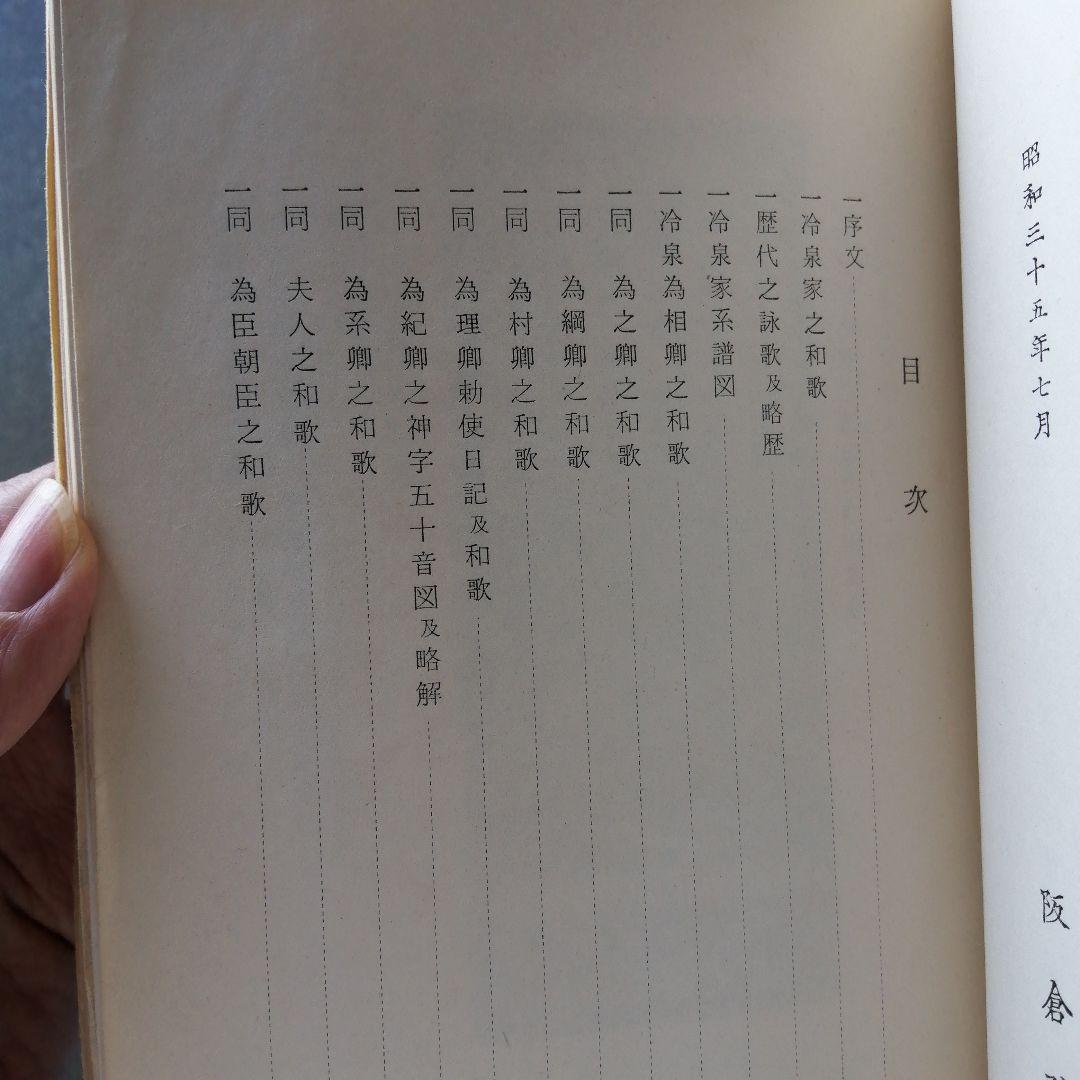 昭和三十五年七月
阪倉
目次
一序文
一冷泉家之和歌
一歴代之詠歌及略歴
一冷泉家系譜図
一冷泉為相卿之和歌
一同 為之卿之和歌
一同 為綱卿之和歌
一同 為村卿之和歌
一同 為理卿勅使日記及和歌
一同 為紀卿之神字五十音図及略解
一同 為系卿之和歌
一同 夫人之和歌
一同 為臣朝臣之和歌